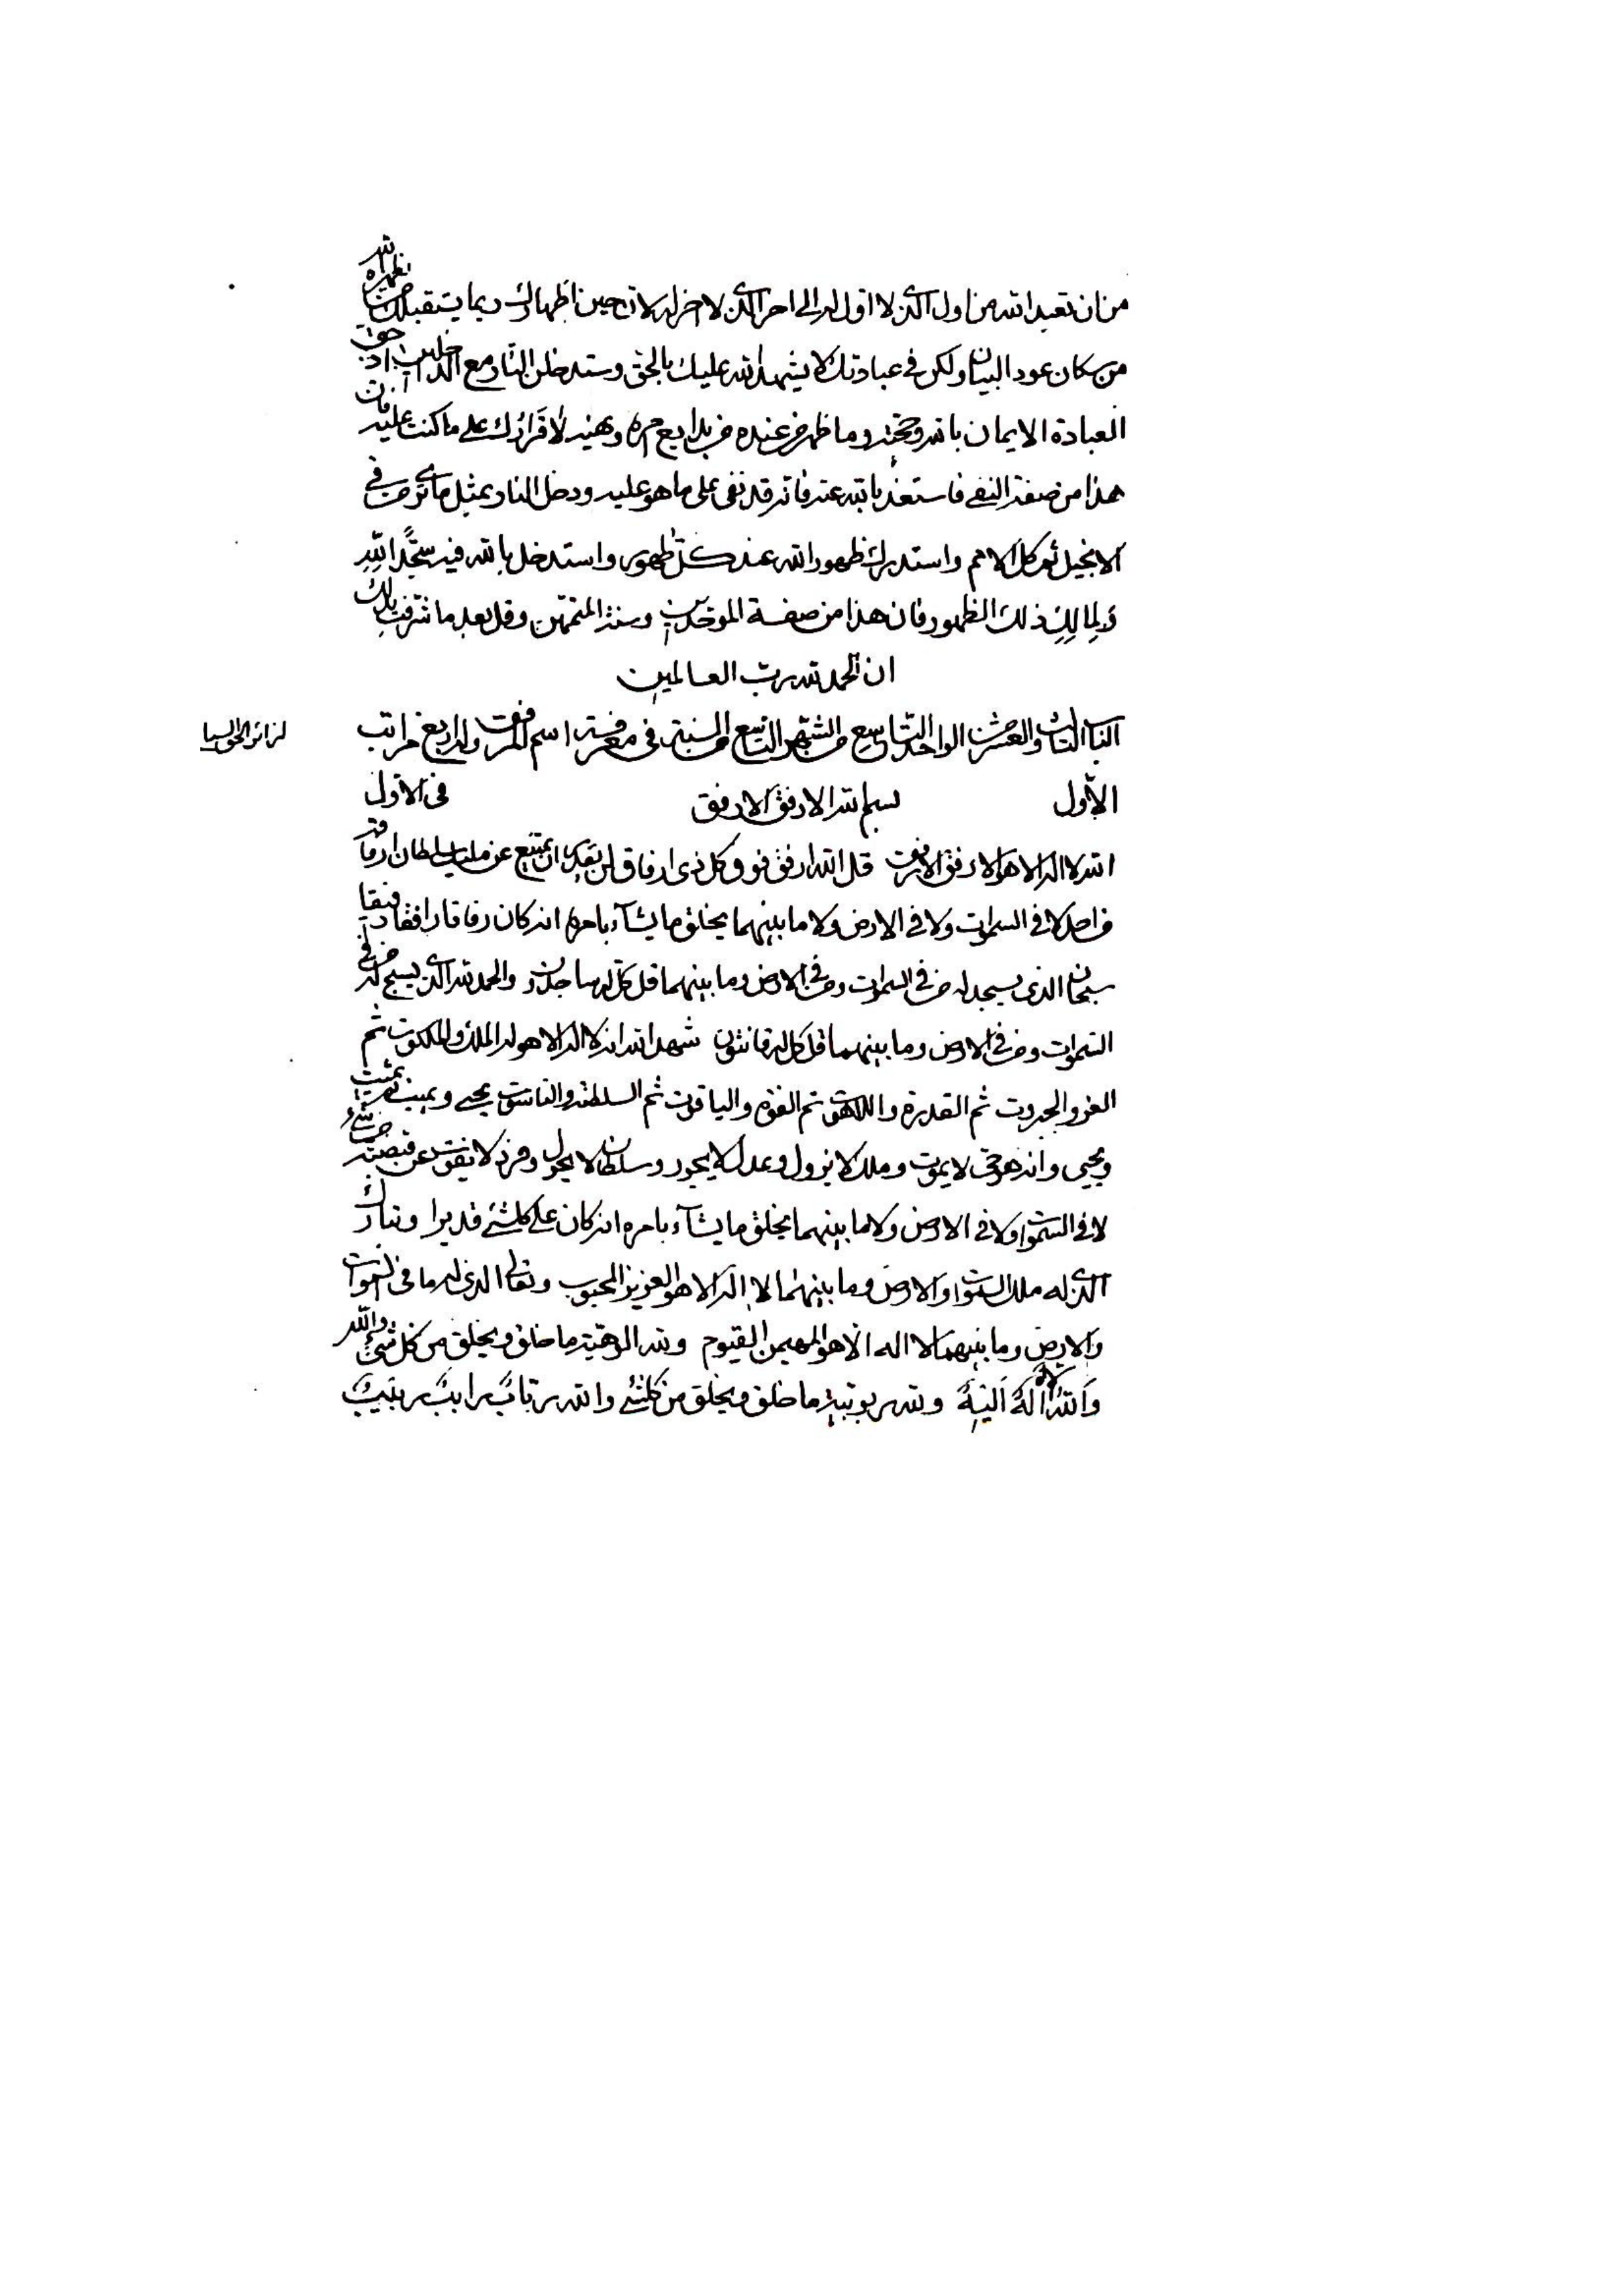 من ان تعبد الله من اول الذي لا اول له الى اخر الذي لا اخر له لان حين اظهارك بما يستقبلك من يظهره الله
من سكان عود البيان ولكن في عبادتك لا يشهد الله عليك بالحق وستدخلن النار مع الداخلين اذ حق
العبادة الايمان بالله وحجته وما ظهر من عنده من بدايع امره وهنيد لاقرارك على ما كنت عليه فان
هذا من صفة النفي فاستعذ بالله عنه فانه قد نفى على ما هو عليه ودخل النار بمثل ما ترى من في
الانجيل ثم كل الامم واستدرك ظهور الله عند كل ظهور واستدخل بالله فيه سجدا لله
ذلك الظهور فان هذا من صفة الموحدين وسنة وقل بعد ما
ان الحمد لله رب العالمين
الباب الثالث والعشر من الواحد التاسع من الشهر التاسع من السنة في معرفة اسم الرفيق وله اربع مراتب
الاول بسم الله الارفق الارفق في الاول
الله لا اله الا هو الارفق الارفق قل الله ارفق فوق كل ذي ارفاق لن يقدر ان يمتنع عن مليك سلطان ارفاقه
من احد لا في السموات ولا في الارض ولا ما بينهما يخلق ما يشآء بامره انه كان رفاقا رافقا رفيقا
سبحان الذي يسجد له من في السموات ومن في الارض وما بينهما قل كل له ساجدون والحمد لله الذي يسبح له من في
السموات ومن في الارض وما بينهما قل كل له قانتون شهد الله انه لا اله الا هو له الملك والملكوت ثم
العز والجبروت ثم القدرة واللاهوت ثم القوة والياقوت ثم السلطنة والناسوت يحيي ويميت ثم يميت
ويحيي وانه هو حي لا يموت وملك لا يزول وعدل لا يجور وسلطان لا يحول وفرد لا يفوت عن قبضته من شيء
لا في السموات ولا في الارض ولا ما بينهما يخلق ما يشآء بامره انه كان على كلشيء قديرا وتبارك
الذي له ملك السموات والارض وما بينهما لا اله الا هو العزيز المحبوب وتعالى الذي له ما في السموات
والارض وما بينهما لا اله الا هو المهيمن القيوم ولله الوهية ما خلق ويخلق من كل شيء والله
والله اله اليه ولله ربوبية ما خلق ويخلق من كلشيء والله رباب رابب ربيب